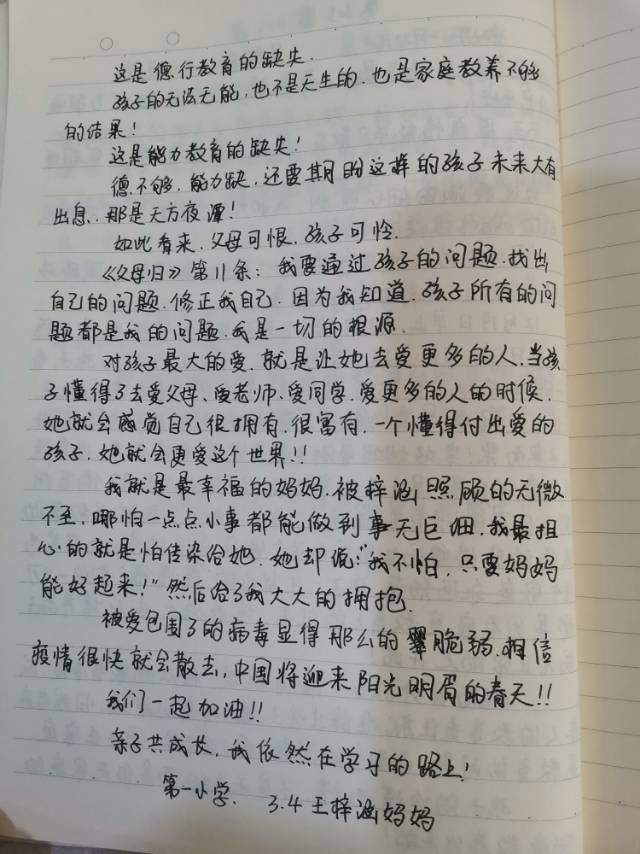 这是德行教育的缺失.
孩子的无法无能,也不是天生的.也是家庭教养不够
的结果!
这是能力教育的缺失!
德不够,能力缺,还要期盼这样的孩子未来大有
出息.那是天方夜谭!
如此看来,父母可恨,孩子可怜.
《父母归》第11条:我要通过孩子的问题.找出
自己的问题.修正我自己.因为我知道.孩子所有的问
题都是我的问题.我是一切的根源.
对孩子最大的爱.就是让她去爱更多的人.当孩
子懂得了去爱父母、爱老师、爱同学、爱更多的人的时候.
她就会感觉自己很拥有.很富有.一个懂得付出爱的
孩子.她就会更爱这个世界!!
我就是最幸福的妈妈.被梓涵照顾的无微
不至.哪怕一点点小事都能做到事无巨细.我最担
心的就是怕传染给她.她却说:"我不怕.只要妈妈
能好起来!"然后给了我大大的拥抱.
被爱包围了的病毒显得那么的脆弱.相信
疫情很快就会散去,中国将迎来阳光明眉的春天!!
我们一起加油!!
亲子共成长,我依然在学习的路上!
第一小学. 3.4王梓涵妈妈